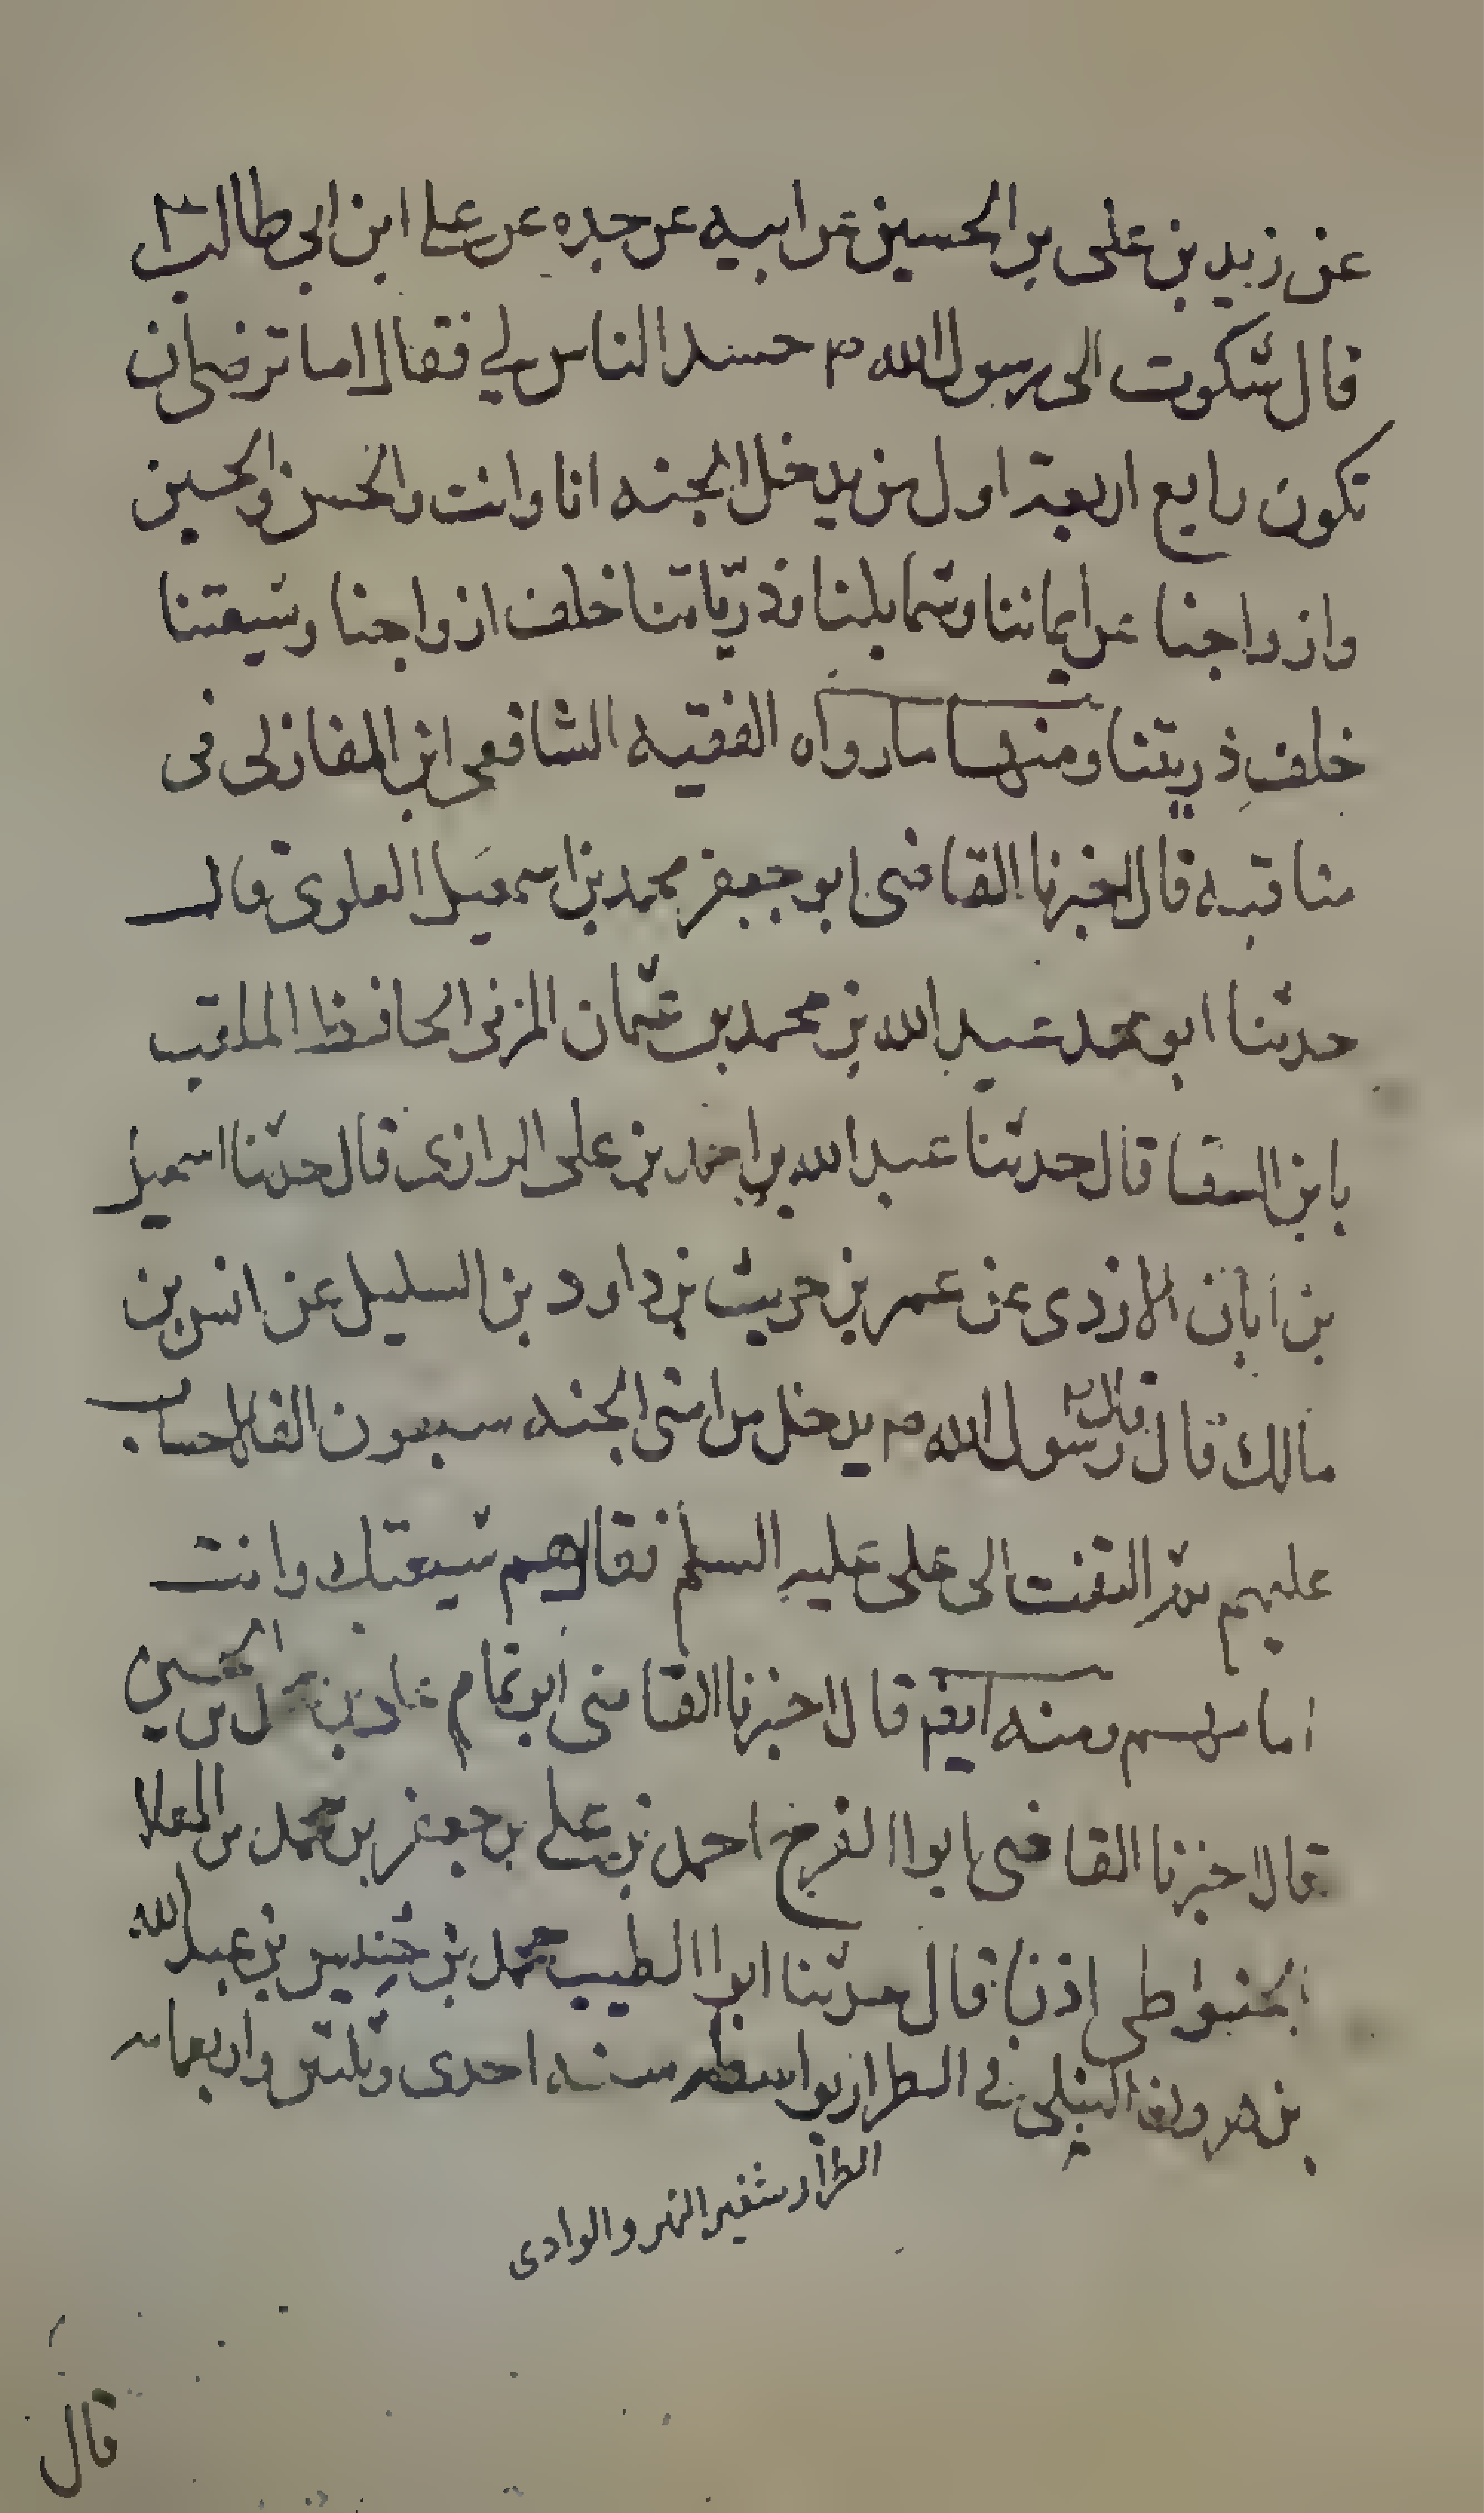 عن زيد بن على بن الحسين عن ابيه عن جده عن على ابن ابي طالب ع
قال شكوت الى رسول الله ص حسد الناس لي فقال اما ترضى ان
تكون رابع اربعة اول من يدخل الجنه انا وانت والحسن والحسين
وازواجنا عن ايماننا وشمايلنا وذريّاتنا خلف ازواجنا وشيعتنا
خلف ذريتنا ومنها ما رواه الفقيه الشافعى ابن المغازلى فى
مناقبه قال اخبرنا القاضى ابو جعفر محمد بن اسمعيل العلوى قال
حدثنا ابو محمد عبد الله بن محمد بن عثمان المزنى الحافظ الملقب
بابن السقا قال حدثنا عبد الله بن احمد بن على الرازى قال حدثنا اسمعيل
بن ابان الازدى عن عمر بن حريث بن داود بن السليل عن انس بن
مالك قال قال رسول الله ص يدخل من امتى الجنه سبعون الفا لاحساب
عليهم ثم التفت الى على عليه السلم فقال هم شيعتك وانت
امامهم ومنه ايضا قال اخبرنا القاضى ابو تمام على بن محمد بن الحسين
قال اخبرنا القاضى ابوا الفرج احمد بن على بن جعفر بن محمد بن المعلا
الخنوطى اذنا قال حدثنا ابوا الطيب محمد بن حبيس بن عبد الله
بن هرون النيلى في الطراز بواسط سنه احدى وثلثين واربعمائه
الطراز شفير النهر والوادى
قال